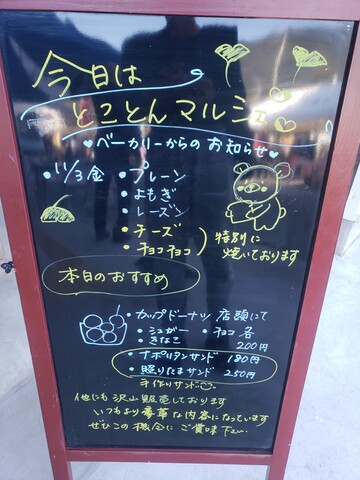 今日は
とことんマルシェ
♥ベーカリーからのお知らせ♥
・11/3 金 ・プレーン
・よもぎ
・レーズン
・チーズ
・チョコチョコ
特別に
焼いております
本日のおすすめ
・カップドーナツ 店頭にて
・シュガー ・チョコ 各
・きなこ 200円
・ナポリタンサンド 180円
・照りたまサンド 250円
手作りサンド
他にも沢山販売しております
いつもより豪華な内容になっています
ぜひこの機会にご賞味下さい